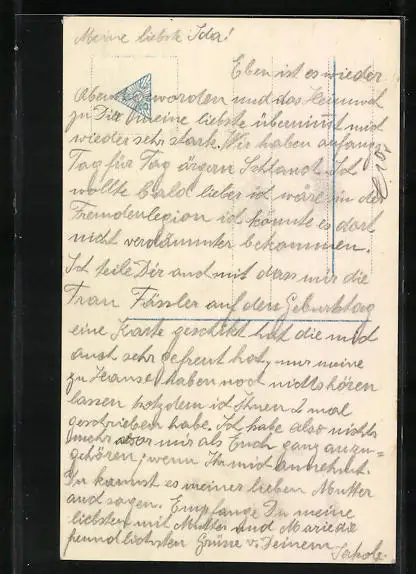 Meine liebste Ida!
Eben ist es wieder
Abend geworden und das Heimweh
zu Dir Du meine liebste übernimt mich
wieder sehr stark. Wir haben anfangs
Tag für Tag Ich
wollte bald lieber ich wäre in der
Fremdenlegion ich könnte es dort
nicht verdammter bekommen.
Ich teile Dir auch mit dass mir die
Frau Fässler auf den Geburtstag
eine Karte geschikt hat die mich
auch sehr gefreut hat, nur meine
zu Hause haben noch nichts hören
lassen trotzdem ich Ihnen 2 mal
geschrieben habe. Ich habe also nichts
mehr mir als Euch ganz anzu=
gehören, wenn Ihr mich annehmt.
Du kannst es meiner lieben Mutter
auch sagen. Empfange Du meine
liebsten mit Mutter und Marie die
freundlichsten Grüsse v. Deinem Jakob.